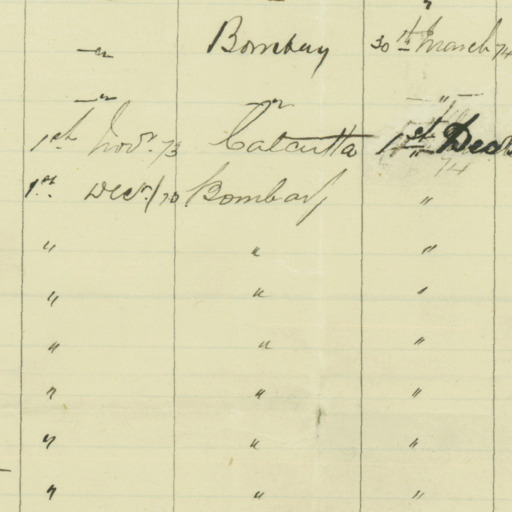 " Bombay 30th March 74
" " "
1st Novr. 73 Calcutta 1st Decr
74
1st Decr./70 Bombay "
" " "
" " "
" " "
" " "
" " "
" " "